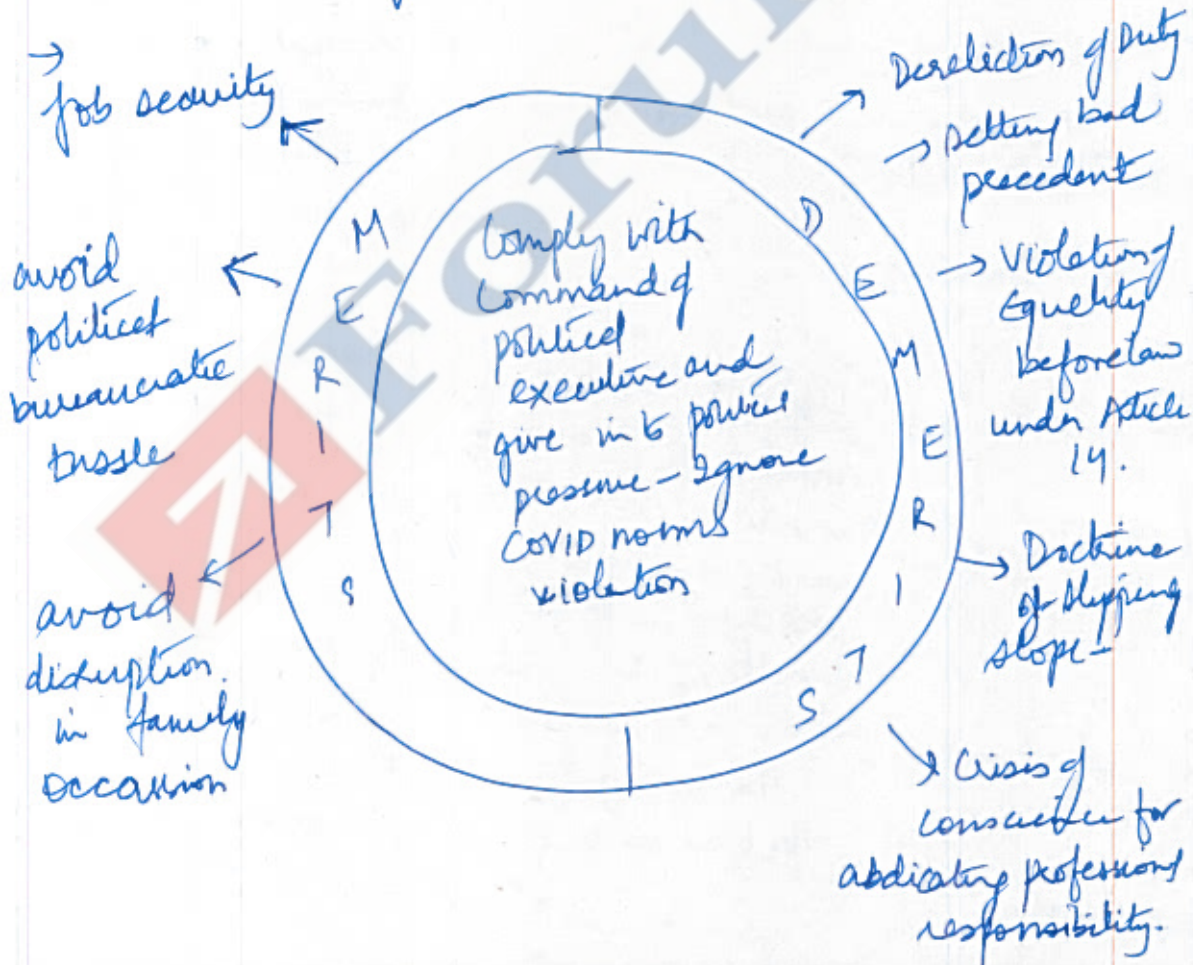 →
Job security
avoid
political
bureaucratic
tussle
avoid
disruption
in family
occassion
MERITS
Comply with
command of
political
executive and
give in to political
pressure - Ignore
COVID norms
violation
DEMERITS
Dereliction of Duty
→ setting bad
precedent
→ Violation of
Equality
before law
under Article
14.
→ Doctrine
of slipping
slope -
→ Crisis of
conscience for
abdicating professional
responsibility.
Foru